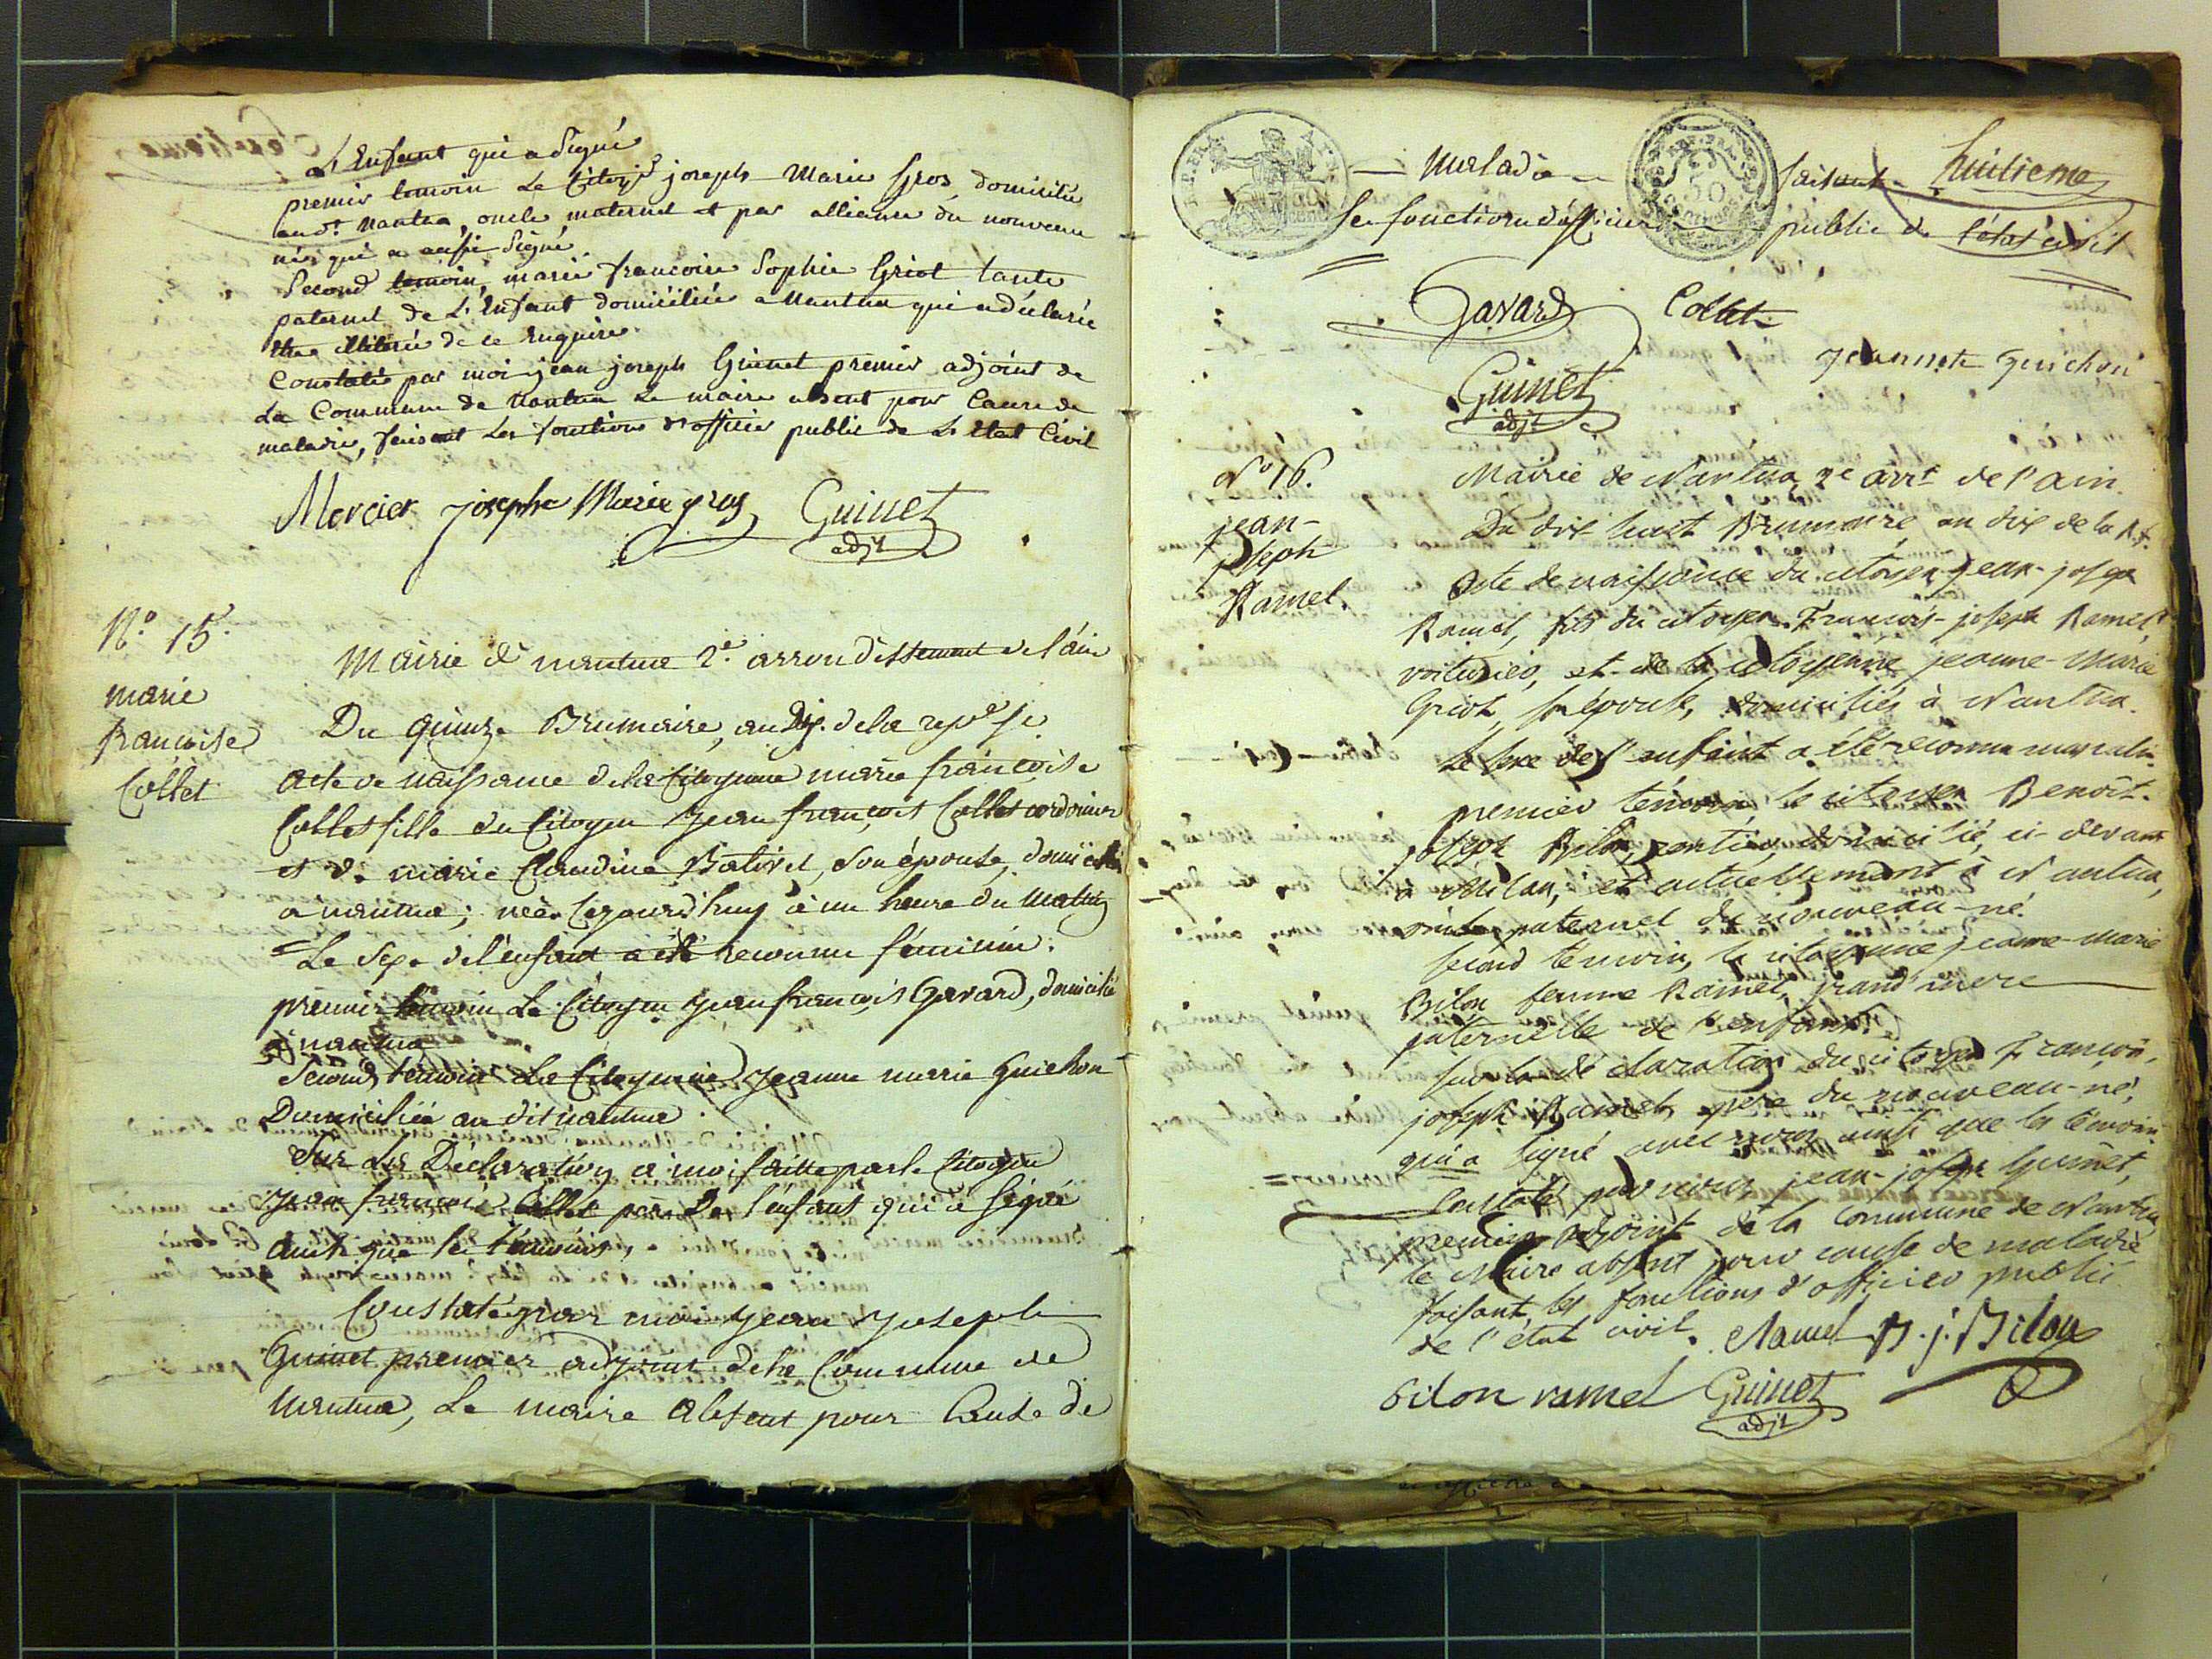 L'Enfant qui a Signé
premier temoin Le Citoy. joseph Marie Gros, domicilié
au dt. Nantua, oncle maternel et par alliance du nouveau
né, qui a aussi Signé
Second temoin, marie francoise Sophie Griot tante
paternel de L'Enfant domiciliée a Nantua qui a déclarée
être illiterée de ce Enquire
Constatée par moi jean joseph Guinet premier adjoint de
La Commune de Nantua Le maire absent pour Cause de
maladie, faisant Les fonctions d'officier public de L'état Civil
Mercier josephe Marie gros Guinet
adjt
N.o 15.
marie
francoise
Collet
Mairie de nantua 2.e arrondissement de l'ain
Du quinze Brumaire, an Dix. de la rep.e fr.
Acte de naissance de la Citoyenne marie françoise
Collet fille du Citoyen jean françois Collet cordonier
et de marie Claudine Balivet, son épouse, domiciliés
a nantua; née Cejourd'huy à un heure du Matin
Le Sexe de l'enfant a été reconnu féminin.
premier temoin Le Citoyen jean françois Gavard, domicilié
a nantua
Second témoin La Citoyenne jeanne marie Guichon
Domiciliée au dit nantua.
Sur La Déclaration a moi faitte par le Citoyen
jean francois Collet pere De l'enfant qui a signé
ainsi que les témoins,
Constaté par moi jean joseph
Guinet premier adjoint de la Commune de
Nantua, Le maire absent pour Cause de
Maladie faisant huitieme
les fonctions d'officier public de l'état civil
Gavard Collet
jeannete Guichon
Guinet
adjt
No 16.
jean-
joseph
Ramel.
Mairie de Nantua, 2e arrt de l'ain.
Du dix-huit Brumaire, an dix de la R.f.
Acte de naissance du citoyen jean-joseph
Ramel, fils du citoyen François-joseph Ramel,
voiturier, et de la citoyenne jeanne-marie
Griot, son épouse, domiciliés à Nantua.
Le sexe de l'enfant a été reconnu masculin.
premier témoin, le citoyen Benoit-
joseph Bilon, rentier, domicilié, ci-devant
à Milan, et actuellement à Nantua,
oncle paternel du nouveau-né.
second temoin, la citoyenne jeanne-marie
Bilon femme Ramel, grand'mere
paternelle de l'enfant.
sur la déclaration du citoyen françois-
joseph Ramel, pere du nouveau-né,
qui a signé avec nous, ainsi que les témoins.
Constaté par nous, jean-joseph Guinet,
premier adjoint de la Commune de Nantua
le Maire absent pour cause de maladie
faisant les fonctions d'officier public
de l'état civil. Ramel B. j. Bilon
bilon ramel Guinet
adjt